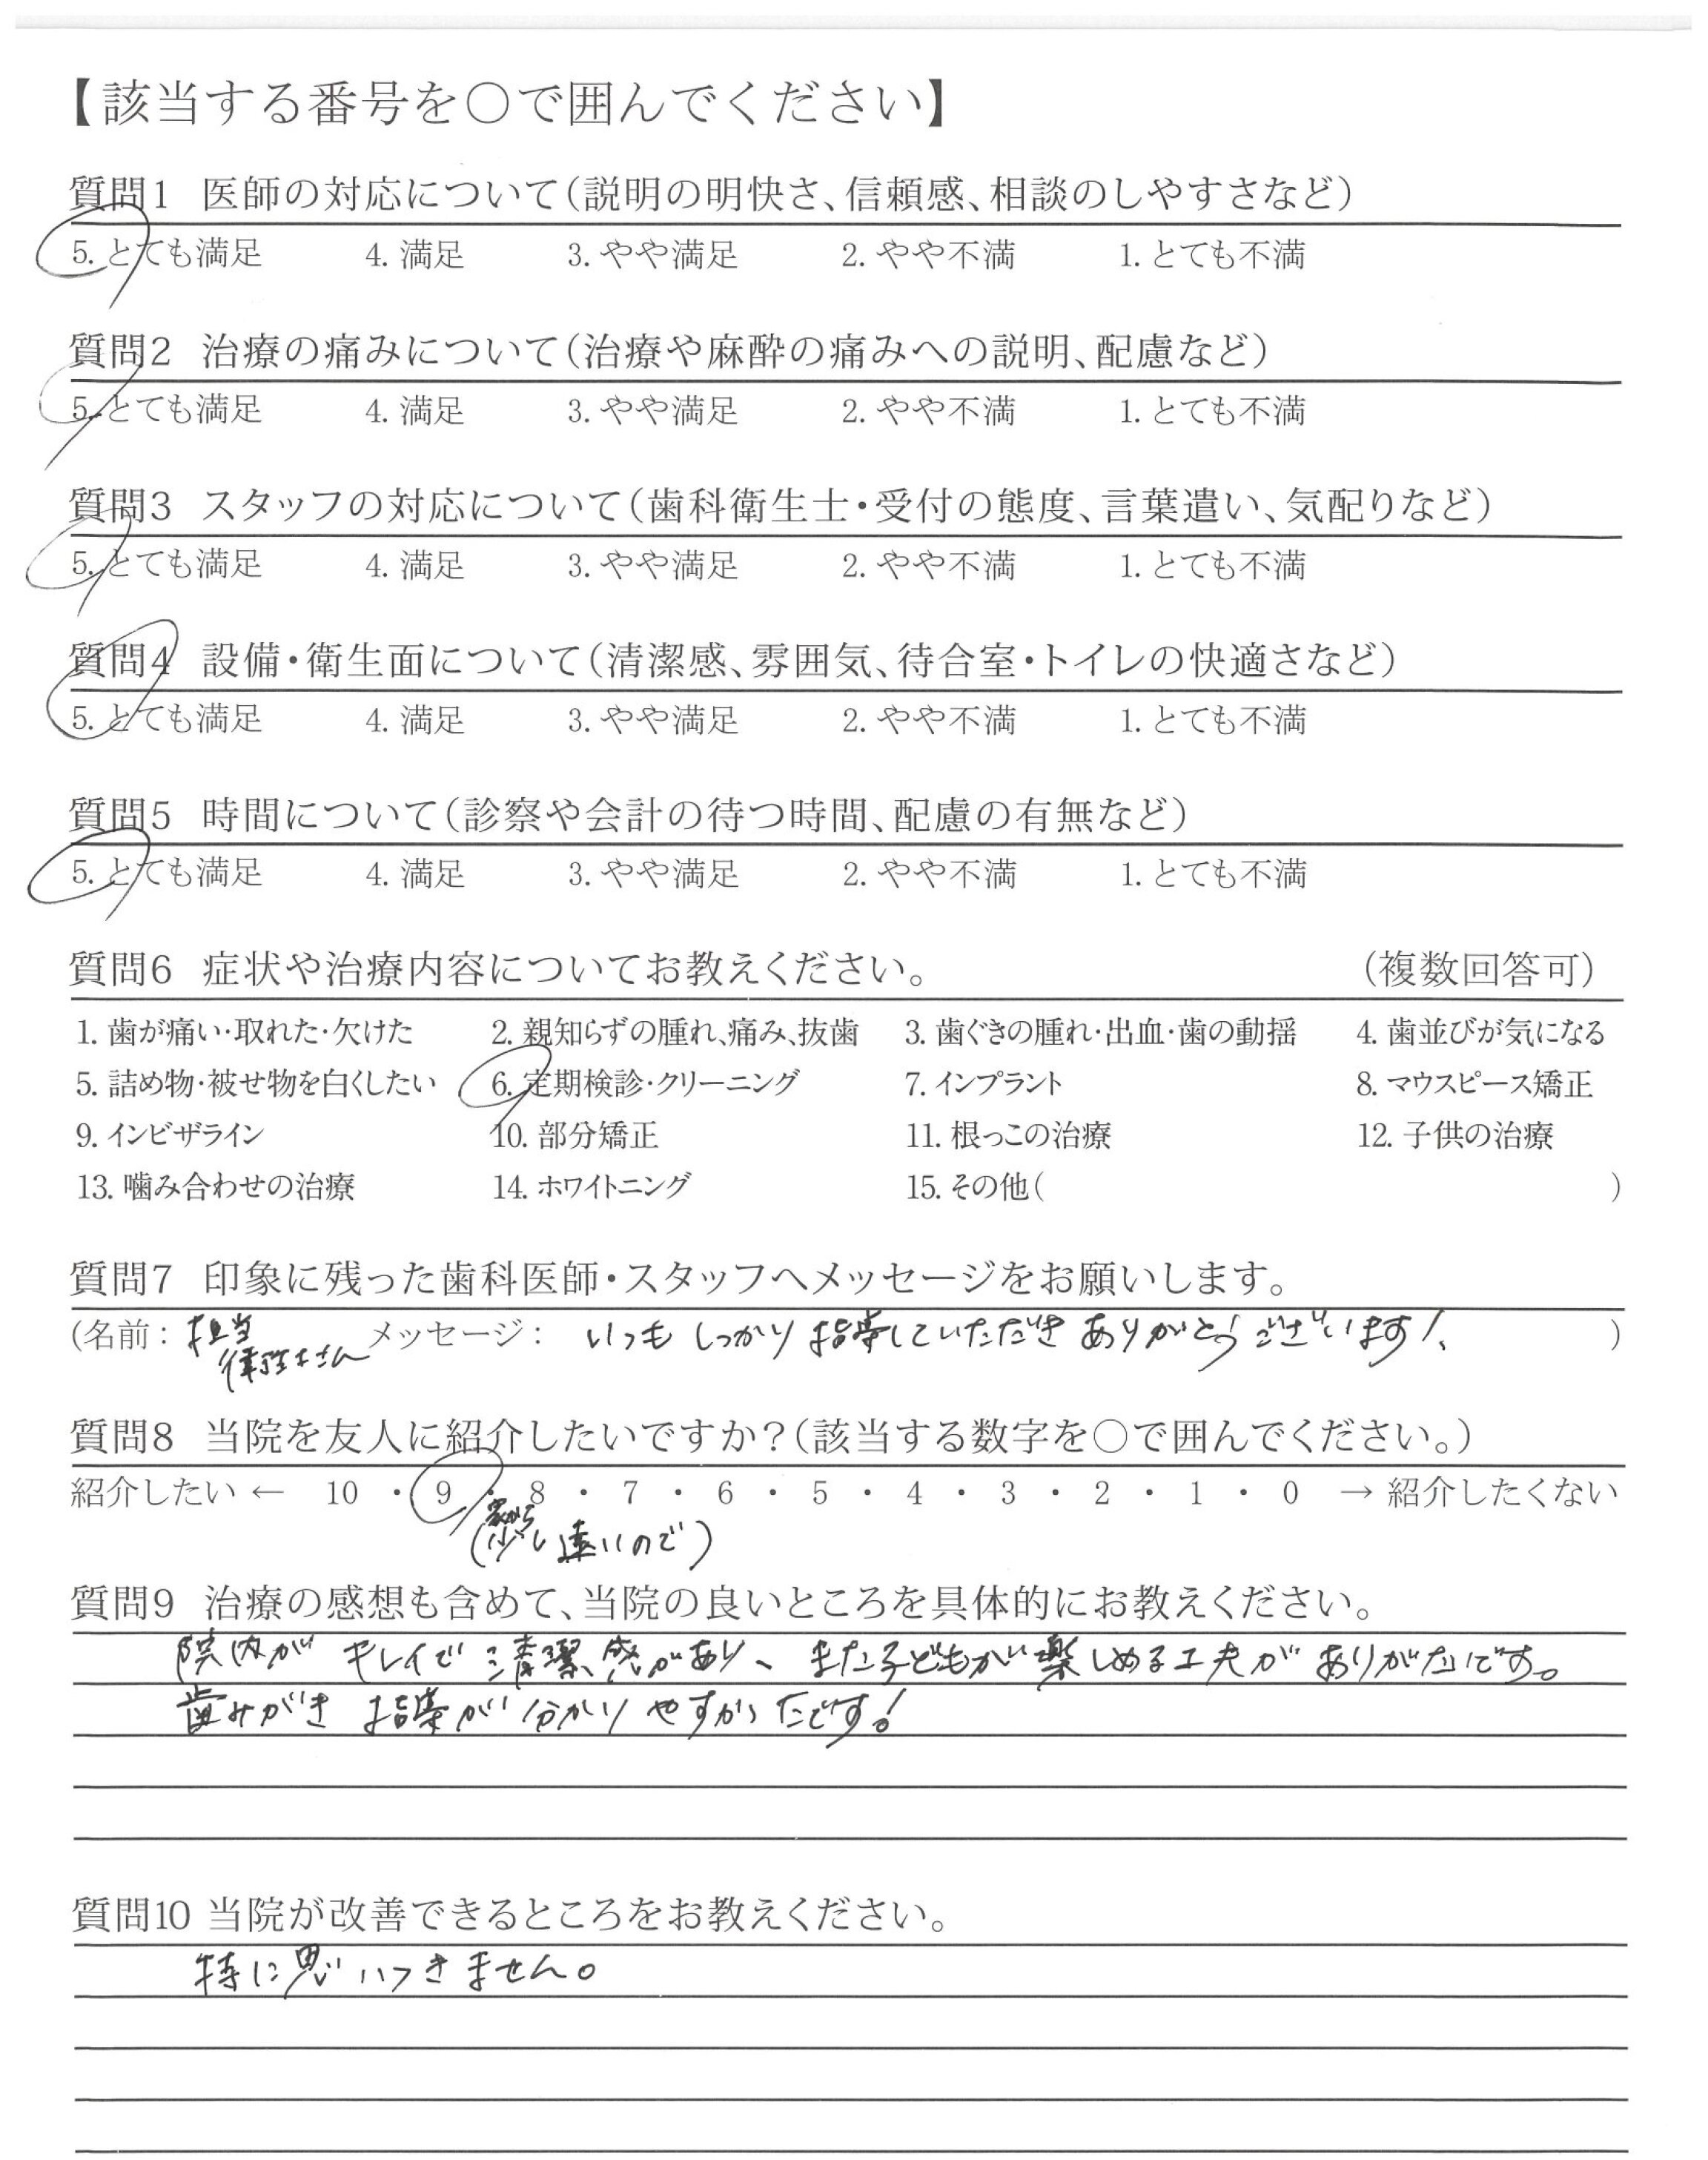 【該当する番号を〇で囲んでください】
質問1 医師の対応について(説明の明快さ、信頼感、相談のしやすさなど)
5. とても満足 4. 満足 3. やや満足 2. やや不満 1. とても不満
質問2 治療の痛みについて(治療や麻酔の痛みへの説明、配慮など)
5. とても満足 4. 満足 3. やや満足 2. やや不満 1. とても不満
質問3 スタッフの対応について(歯科衛生士・受付の態度、言葉遣い、気配りなど)
5. とても満足 4. 満足 3. やや満足 2. やや不満 1. とても不満
質問4 設備・衛生面について(清潔感、雰囲気、待合室・トイレの快適さなど)
5. とても満足 4. 満足 3. やや満足 2. やや不満 1. とても不満
質問5 時間について(診察や会計の待つ時間、配慮の有無など)
5. とても満足 4. 満足 3. やや満足 2. やや不満 1. とても不満
質問6 症状や治療内容についてお教えください。 (複数回答可)
1. 歯が痛い・取れた・欠けた 2. 親知らずの腫れ、痛み、抜歯 3. 歯ぐきの腫れ・出血・歯の動揺 4. 歯並びが気になる
5. 詰め物・被せ物を白くしたい 6. 定期検診・クリーニング 7. インプラント 8. マウスピース矯正
9. インビザライン 10. 部分矯正 11. 根っこの治療 12. 子供の治療
13. 噛み合わせの治療 14. ホワイトニング 15. その他( )
質問7 印象に残った歯科医師・スタッフへメッセージをお願いします。
(名前: 担当衛生士さん メッセージ: いつもしっかり指導していただきありがとうございます! )
質問8 当院を友人に紹介したいですか?(該当する数字を〇で囲んでください。)
紹介したい ← 10 ・ 9 ・ 8 ・ 7 ・ 6 ・ 5 ・ 4 ・ 3 ・ 2 ・ 1 ・ 0 → 紹介したくない
(家から少し遠いので)
質問9 治療の感想も含めて、当院の良いところを具体的にお教えください。
院内がキレイで清潔感があり、また子どもが楽しめる工夫がありがたいです。
歯みがき指導が分かりやすかったです!
質問10 当院が改善できるところをお教えください。
特に思いつきません。